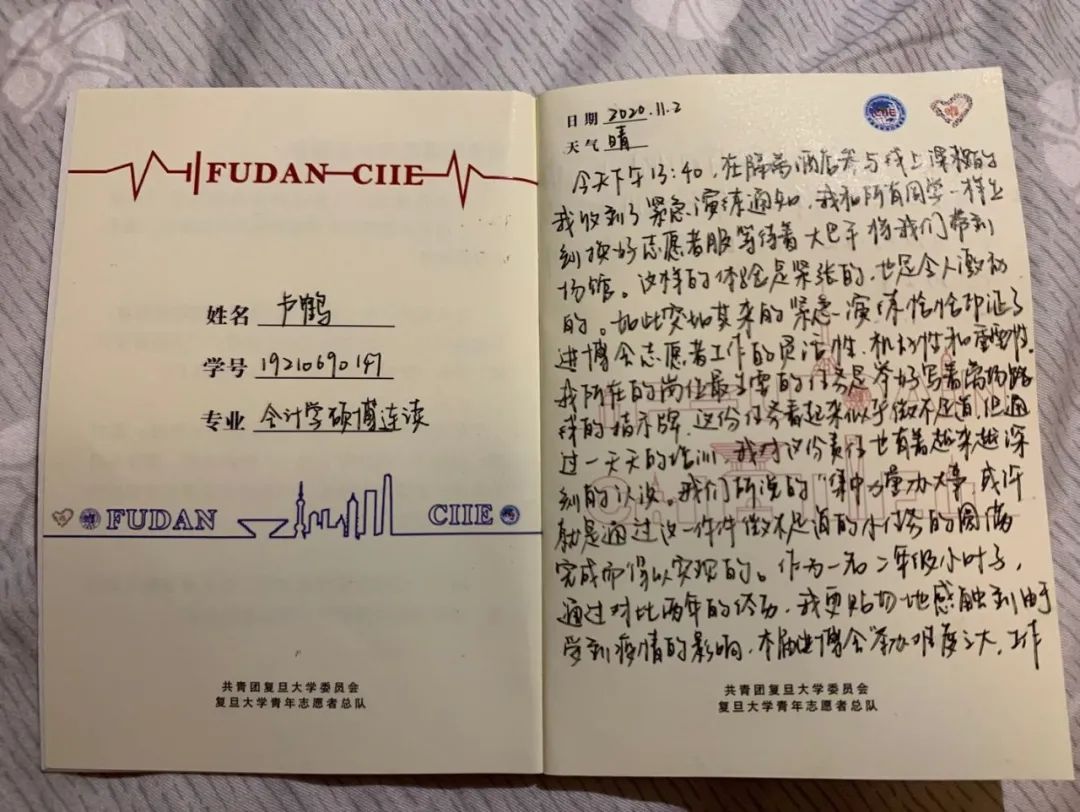 FUDAN CIIE
姓名 卢鹤
学号 19210690147
专业 会计学硕博连读
FUDAN
CIIE
共青团复旦大学委员会
复旦大学青年志愿者总队
日期 2020.11.2
天气 晴
CIIE
今天下午13:40,在隔离酒店参与线上课程的
我收到了紧急演练通知,我和所有同学一样立
刻换好志愿者服等待着大巴车将我们带到
场馆。这样的体验是紧张的,也是令人激动
的。如此突如其来的紧急演练恰恰印证了
进博会志愿者工作的灵活性、机动性和重要性。
我所在的岗位最主要的任务是举好写着离场路
线的指示牌,这份任务看起来似乎微不足道,但通
过一天天的培训,我对这份责任也有着越来越深
刻的认识。我们所说的"集中力量办大事"或许
就是通过这一件件微不足道的小任务的圆满
完成而得以实现的。作为一名二年级小叶子,
通过对比两年的经历,我更贴切地感触到由于
受到疫情的影响,本届进博会举办难度之大,工作
共青团复旦大学委员会
复旦大学青年志愿者总队